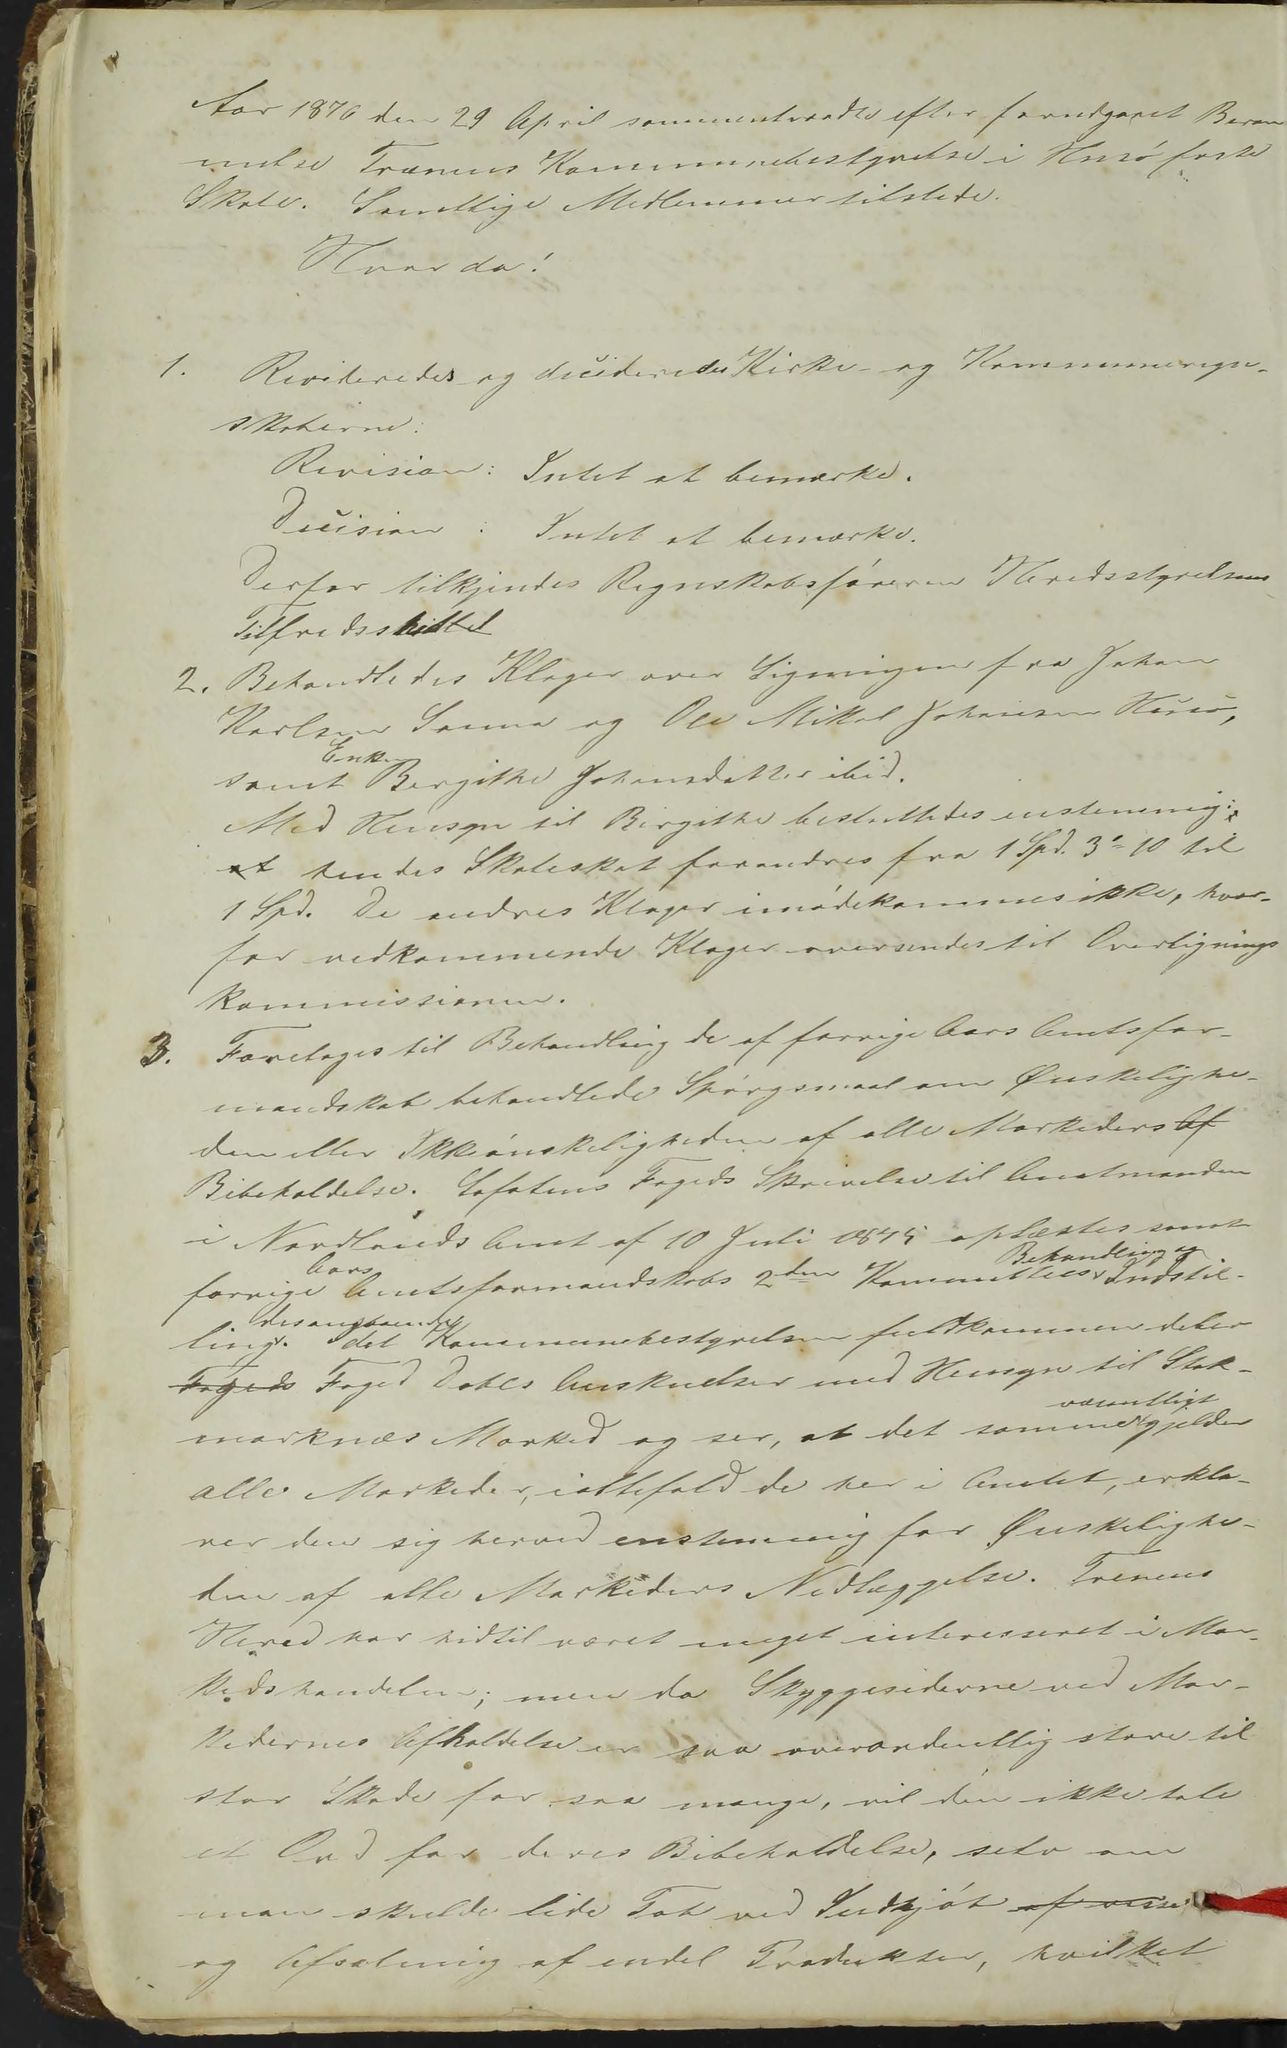 Aar 1876 den 29 April sammentraadte efter forudgaaet Beram
melse Trænens Kommunebestyrelse i Husø faste
Skole. Samtlige Medlemmer tilstede.
Hvor da!
1. Revideredes og decideredes Kirke- og Kommuneregn-
skaberne:
Revision: Intet at bemærke.
Decision: Intet at bemærke.
Derfor tilkjendes Regnskabsføreren Heredsstyrelsens
Tilfredshed
2. Behandledes Klager over Ligningen fra Johan
Karlsen Sanna og Ole Mikal Johansen Husø,
Enke
samt Bergithe Johansdatter ibid.
Med Hensyn til Birgithe besluttedes enstemmig:
at hendes Skoleskat forandres fra 1 Spd. 3 - 10 til
1 Spd. De andres Klager imødekommes ikke, hvor-
for vedkommende Klager oversendes til Overlignings
kommissionen.
3. Foretoges til Behandling de af forrige Aars Amtsfor-
mandskab behandlede Spørgsmaal om Ønskelighe-
den eller Ikkeønskeligheden af alle Markeders Af
Bibeholdelse. Lofotens Fogeds Skrivelse til Amtmanden
i Nordlands Amt af 10 Juli 1875 oplæstes samt
Aars Behandling og
forrige Amtsformandskabs 2den Kommittees Indstil-
desangaaende
ling. Idet Kommunebestyrelsen fuldkommen deler
Fogeds Foged Dahls Anskuelser med Hensyn til Stok-
væsentligt
marknæs Marked og ser, at det samme gjelder
alle Markeder, iallefald de her i Amtet, erklæ-
rer den sig herved enstemmig for Ønskelighe-
den af alle Markeders Nedlæggelse. Trænens
Hered har hidtil været meget interesseret i Mar-
kedshandelen; men da Skyggesiderne ved Mar-
kedernes Afholdelse er saa overordentlig store til
stor Skade for saa mange, vil den ikke tale
et Ord for deres Bibeholdelse, selv om
man skulde lide Tab ved Indkjøb af visse
og Afsætning af endel Produkter, hvilket